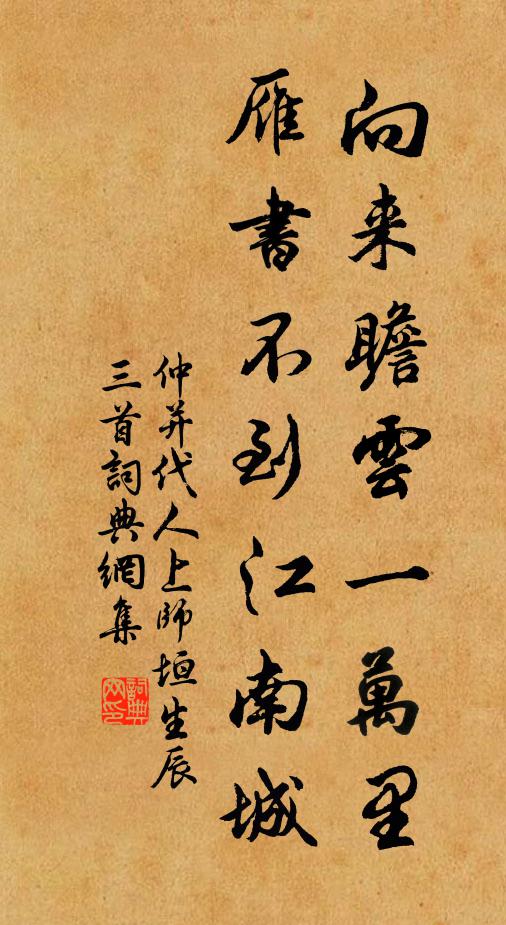 向来瞻雲一萬里
雁書不到江南城
仲并代人上師垣生辰
三首詞典網集
詞典
网印